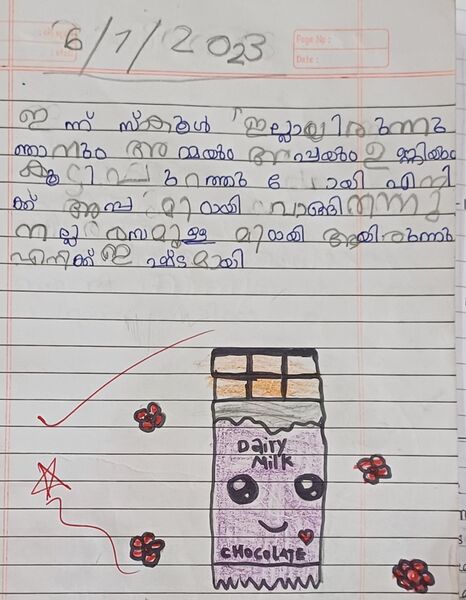 6/1/2023
Page No:
Date:
ഇന്ന് സ്കൂൾ ഇല്ലായിരുന്നു
ഞാനും അമ്മയും അച്ഛയും ഉണ്ണിയും
കൂടി പുറത്തു പോയി എനി
ക്ക് അച്ഛ മിഠായി വാങ്ങിതന്നു
നല്ല രസമുള്ള മിഠായി ആയിരുന്നു
എനിക്ക് ഇഷ്ടമായി
Dairy
Milk
CHOCOLATE